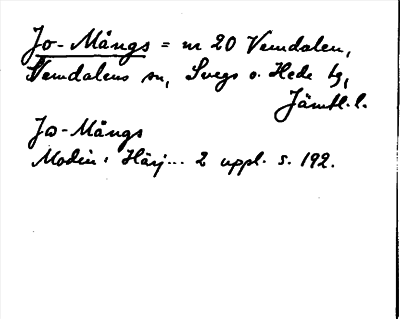 Jo-Mångs = nr 20 Vemdalen,
Vemdalens sn, Svegs o. Hede tg,
Jämtl. l.
Jo-Mångs
Modin: Härj... 2 uppl. s. 192.